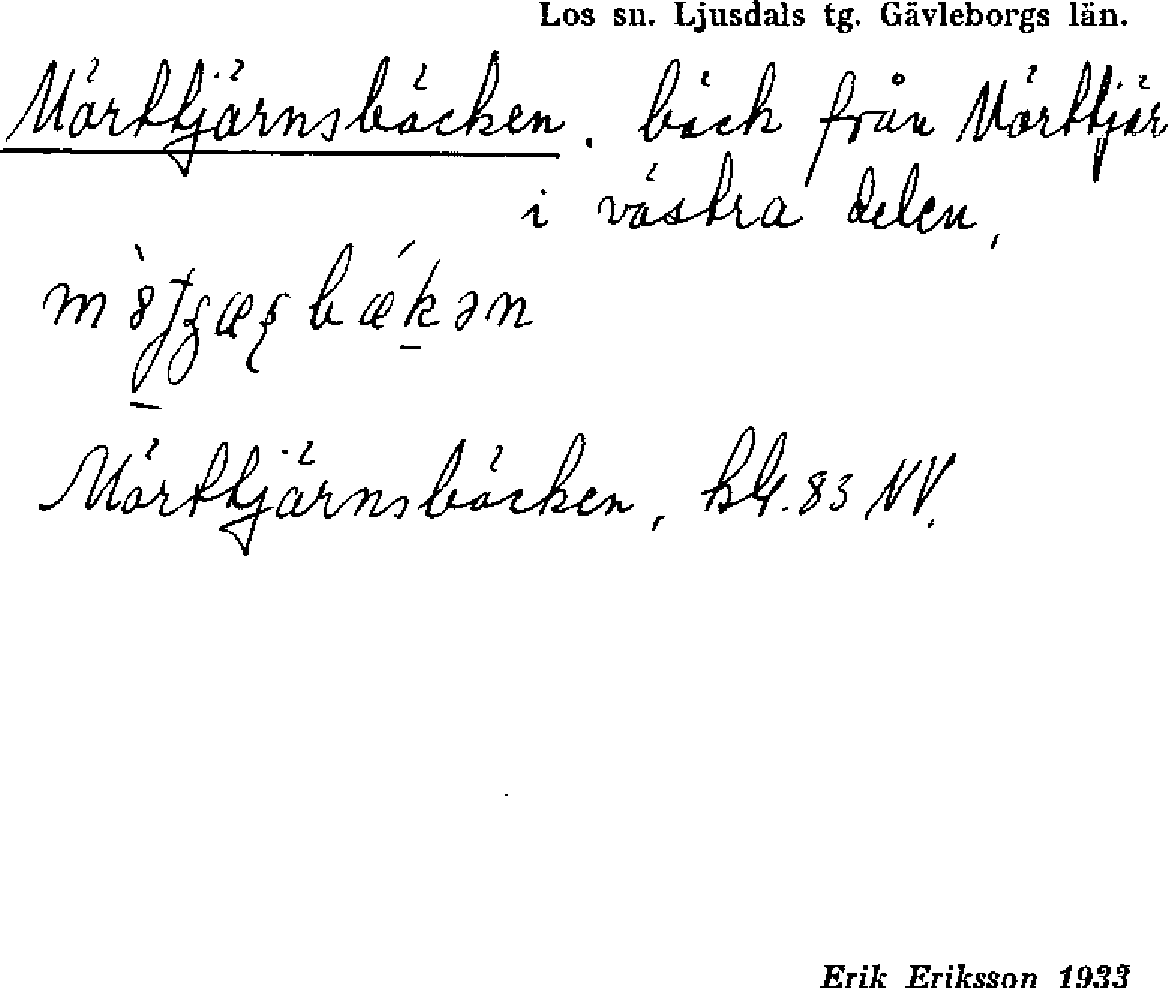 Los sn. Ljusdals tg. Gävleborgs län.
Mörttjärnsbäcken. bäck från Mörttjär
i västra delen,
Mörttjärnsbäcken, bl. 83 NV.
Erik Eriksson 1933